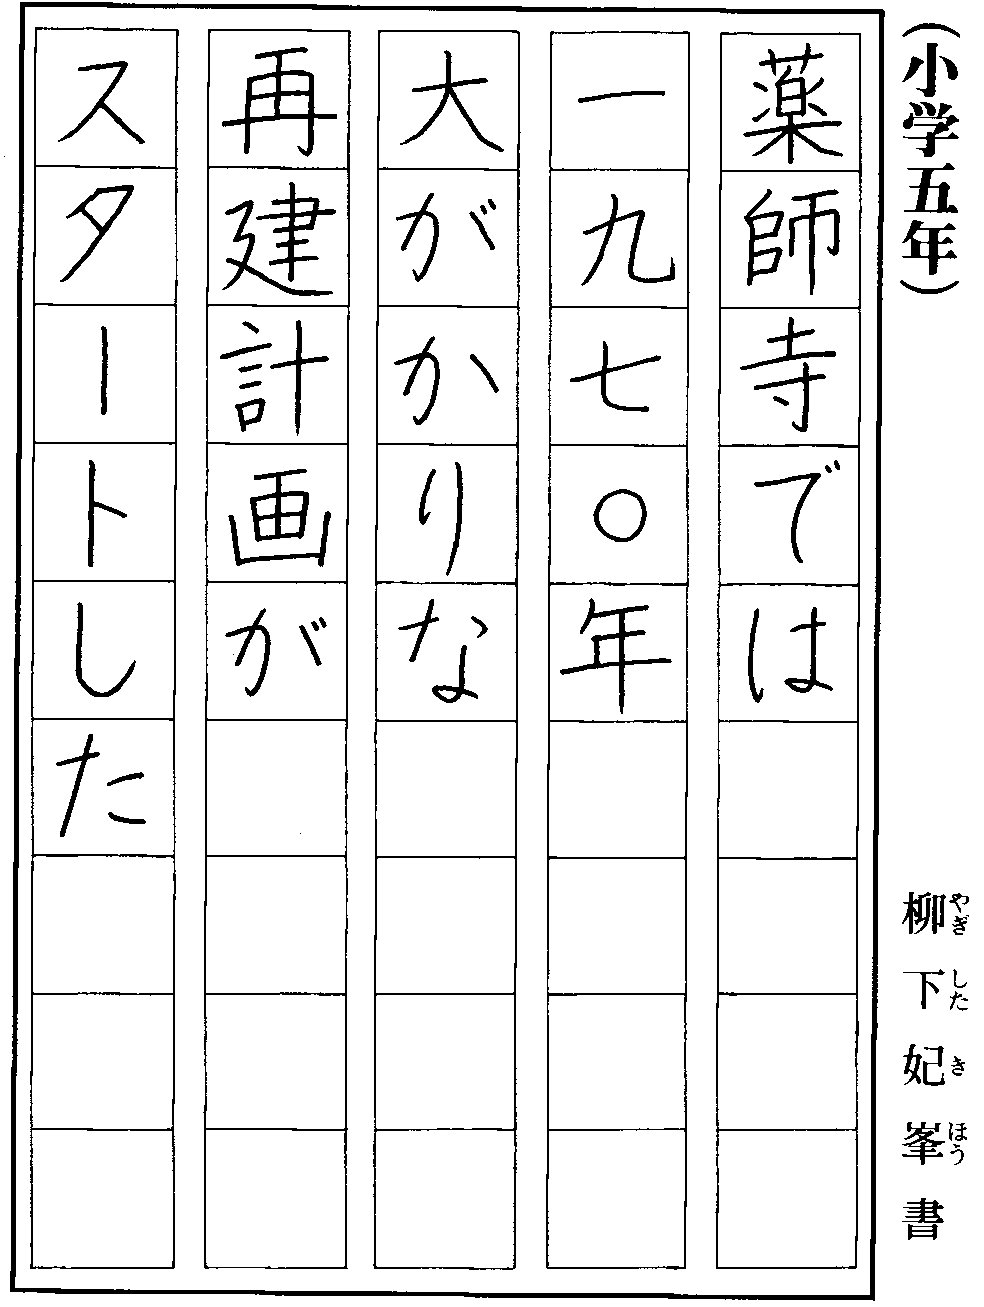 (小学五年)
柳下妃峯書
やぎしたきほう
薬師寺では
一九七〇年
大がかりな
再建計画が
スタートした